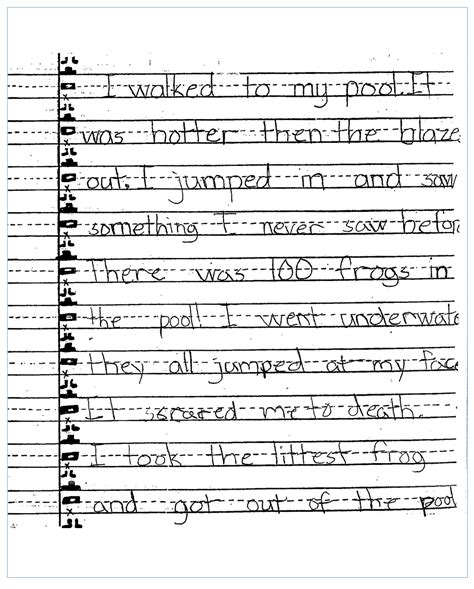 I walked to my pool. It
was hotter then the blaze
out. I jumped in and saw
something I never saw befor
There was 100 frogs in
the pool! I went underwate
they all jumped at my face
It scared me to death.
I took the littest frog
and got out of the pool